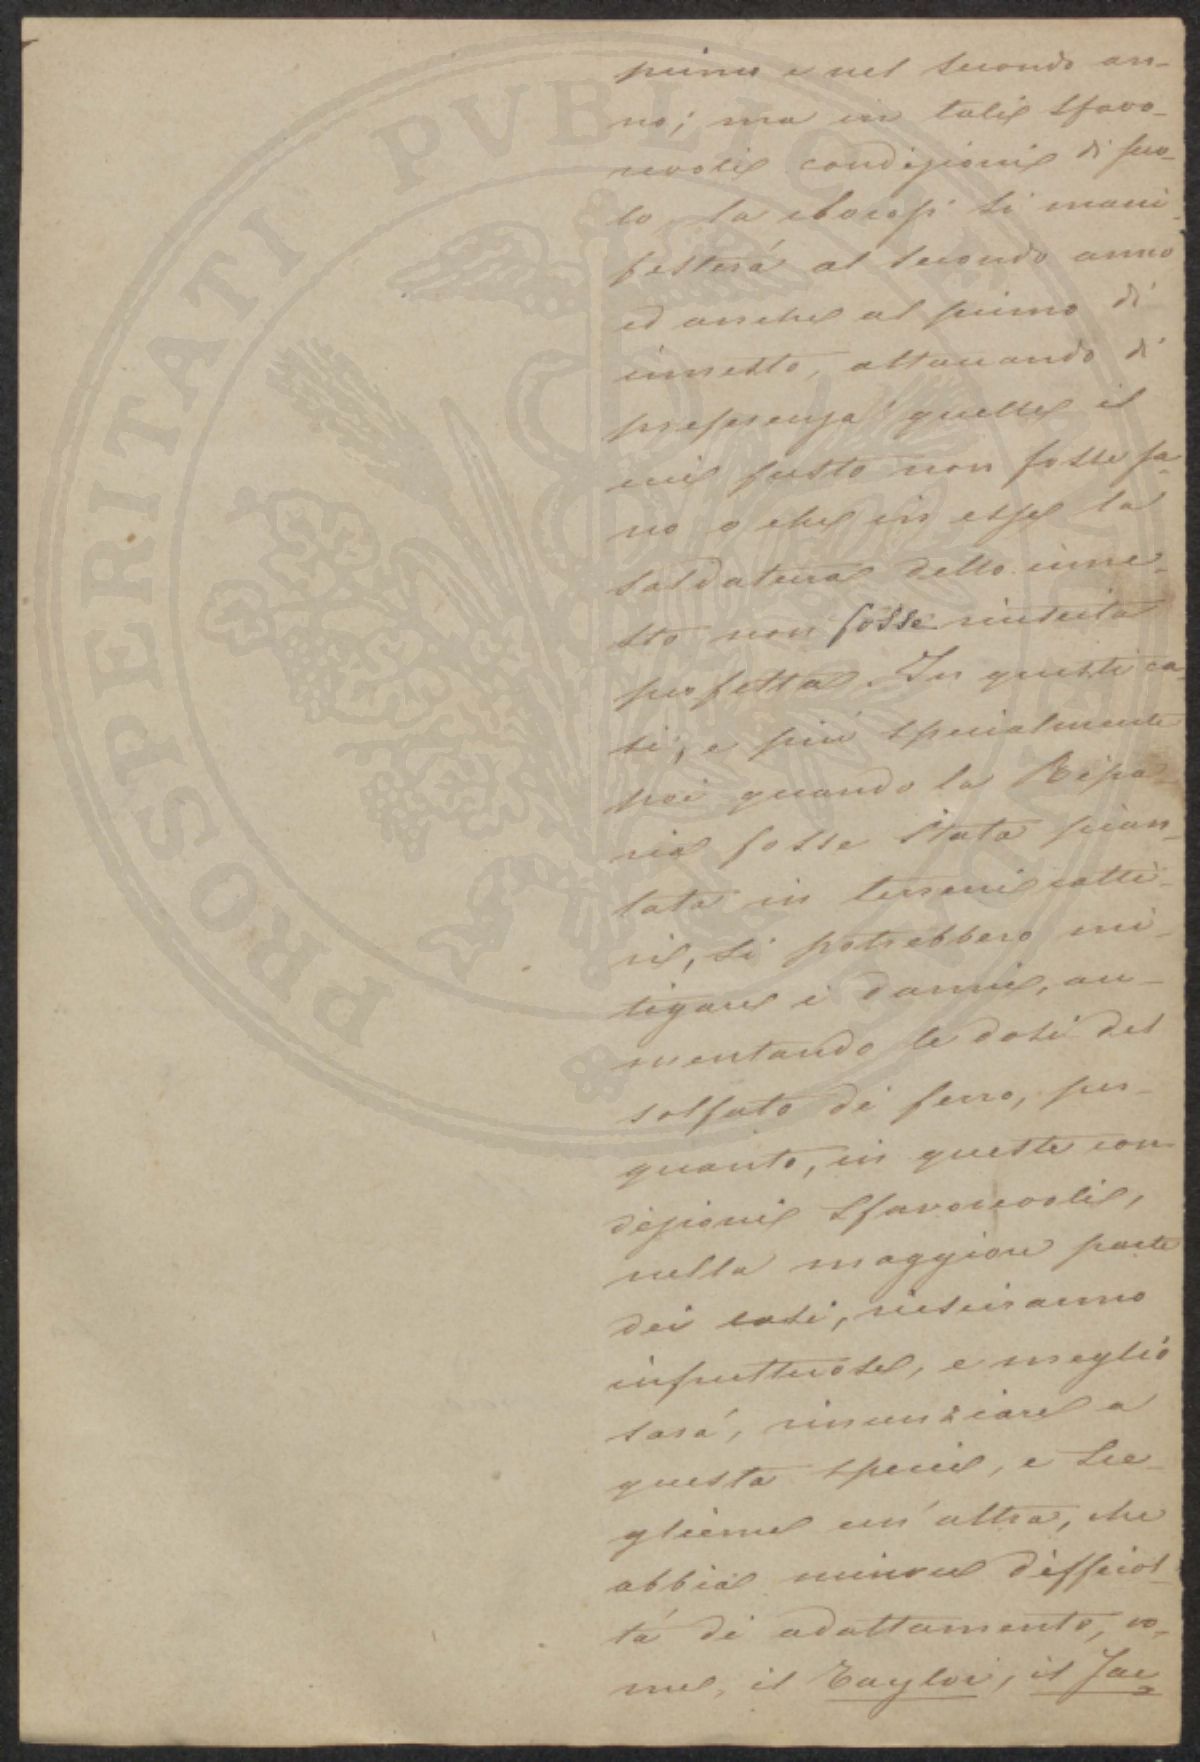 primo e nel secondo an-
no; ma in tali sfavo-
revoli condizioni di suo-
lo, la clorosi si mani-
festerá al secondo anno
ed anche al primo di
innesto, attaccando di
preferenza quelle il
cui fusto non fosse sa-
no o che in esse la
saldatura dello inne-
sto non fosse riuscita
perfetta. In questi ca-
si, e piú specialmente
poi quando la Ripa-
ria fosse stata pian-
tata in terreni catti-
vi, si potrebbero mi-
tigare i danni, au-
mentando le dosi del
solfato di ferro, per
quanto, in queste con
dizioni sfavorevoli,
nella maggiore parte
dei casi, riesciranno
infruttuose, e meglio
sará, rinunziare a
questa specie, e sce-
glierne un'altra, che
abbia minore difficol-
tá di adattamento, co-
me, il Taylor, il Jac
PROSPERITATI PVBLICAE